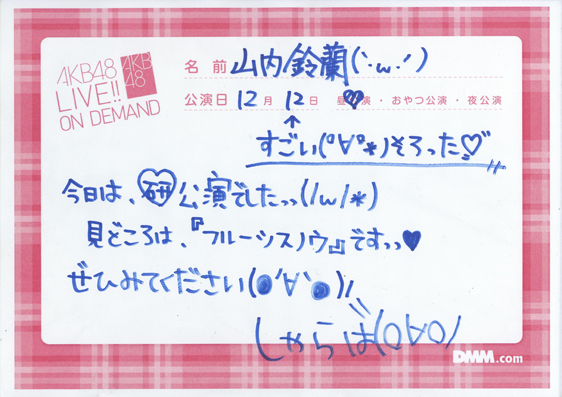 AKB48
LIVE!!
ON DEMAND
AKB
48
名前 山内鈴蘭(`･ω･´)
公演日 12月 12日 昼♥演・おやつ公演・夜公演
↑
すごい(°∀°*)そろった♡
今日は、研公演でしたっっ(/ω/*)
見どころは、『フルーシスノウ』ですっっ♥
ぜひみてください(●'∀`●)!
しゃらは(O∀O)
DMM.com